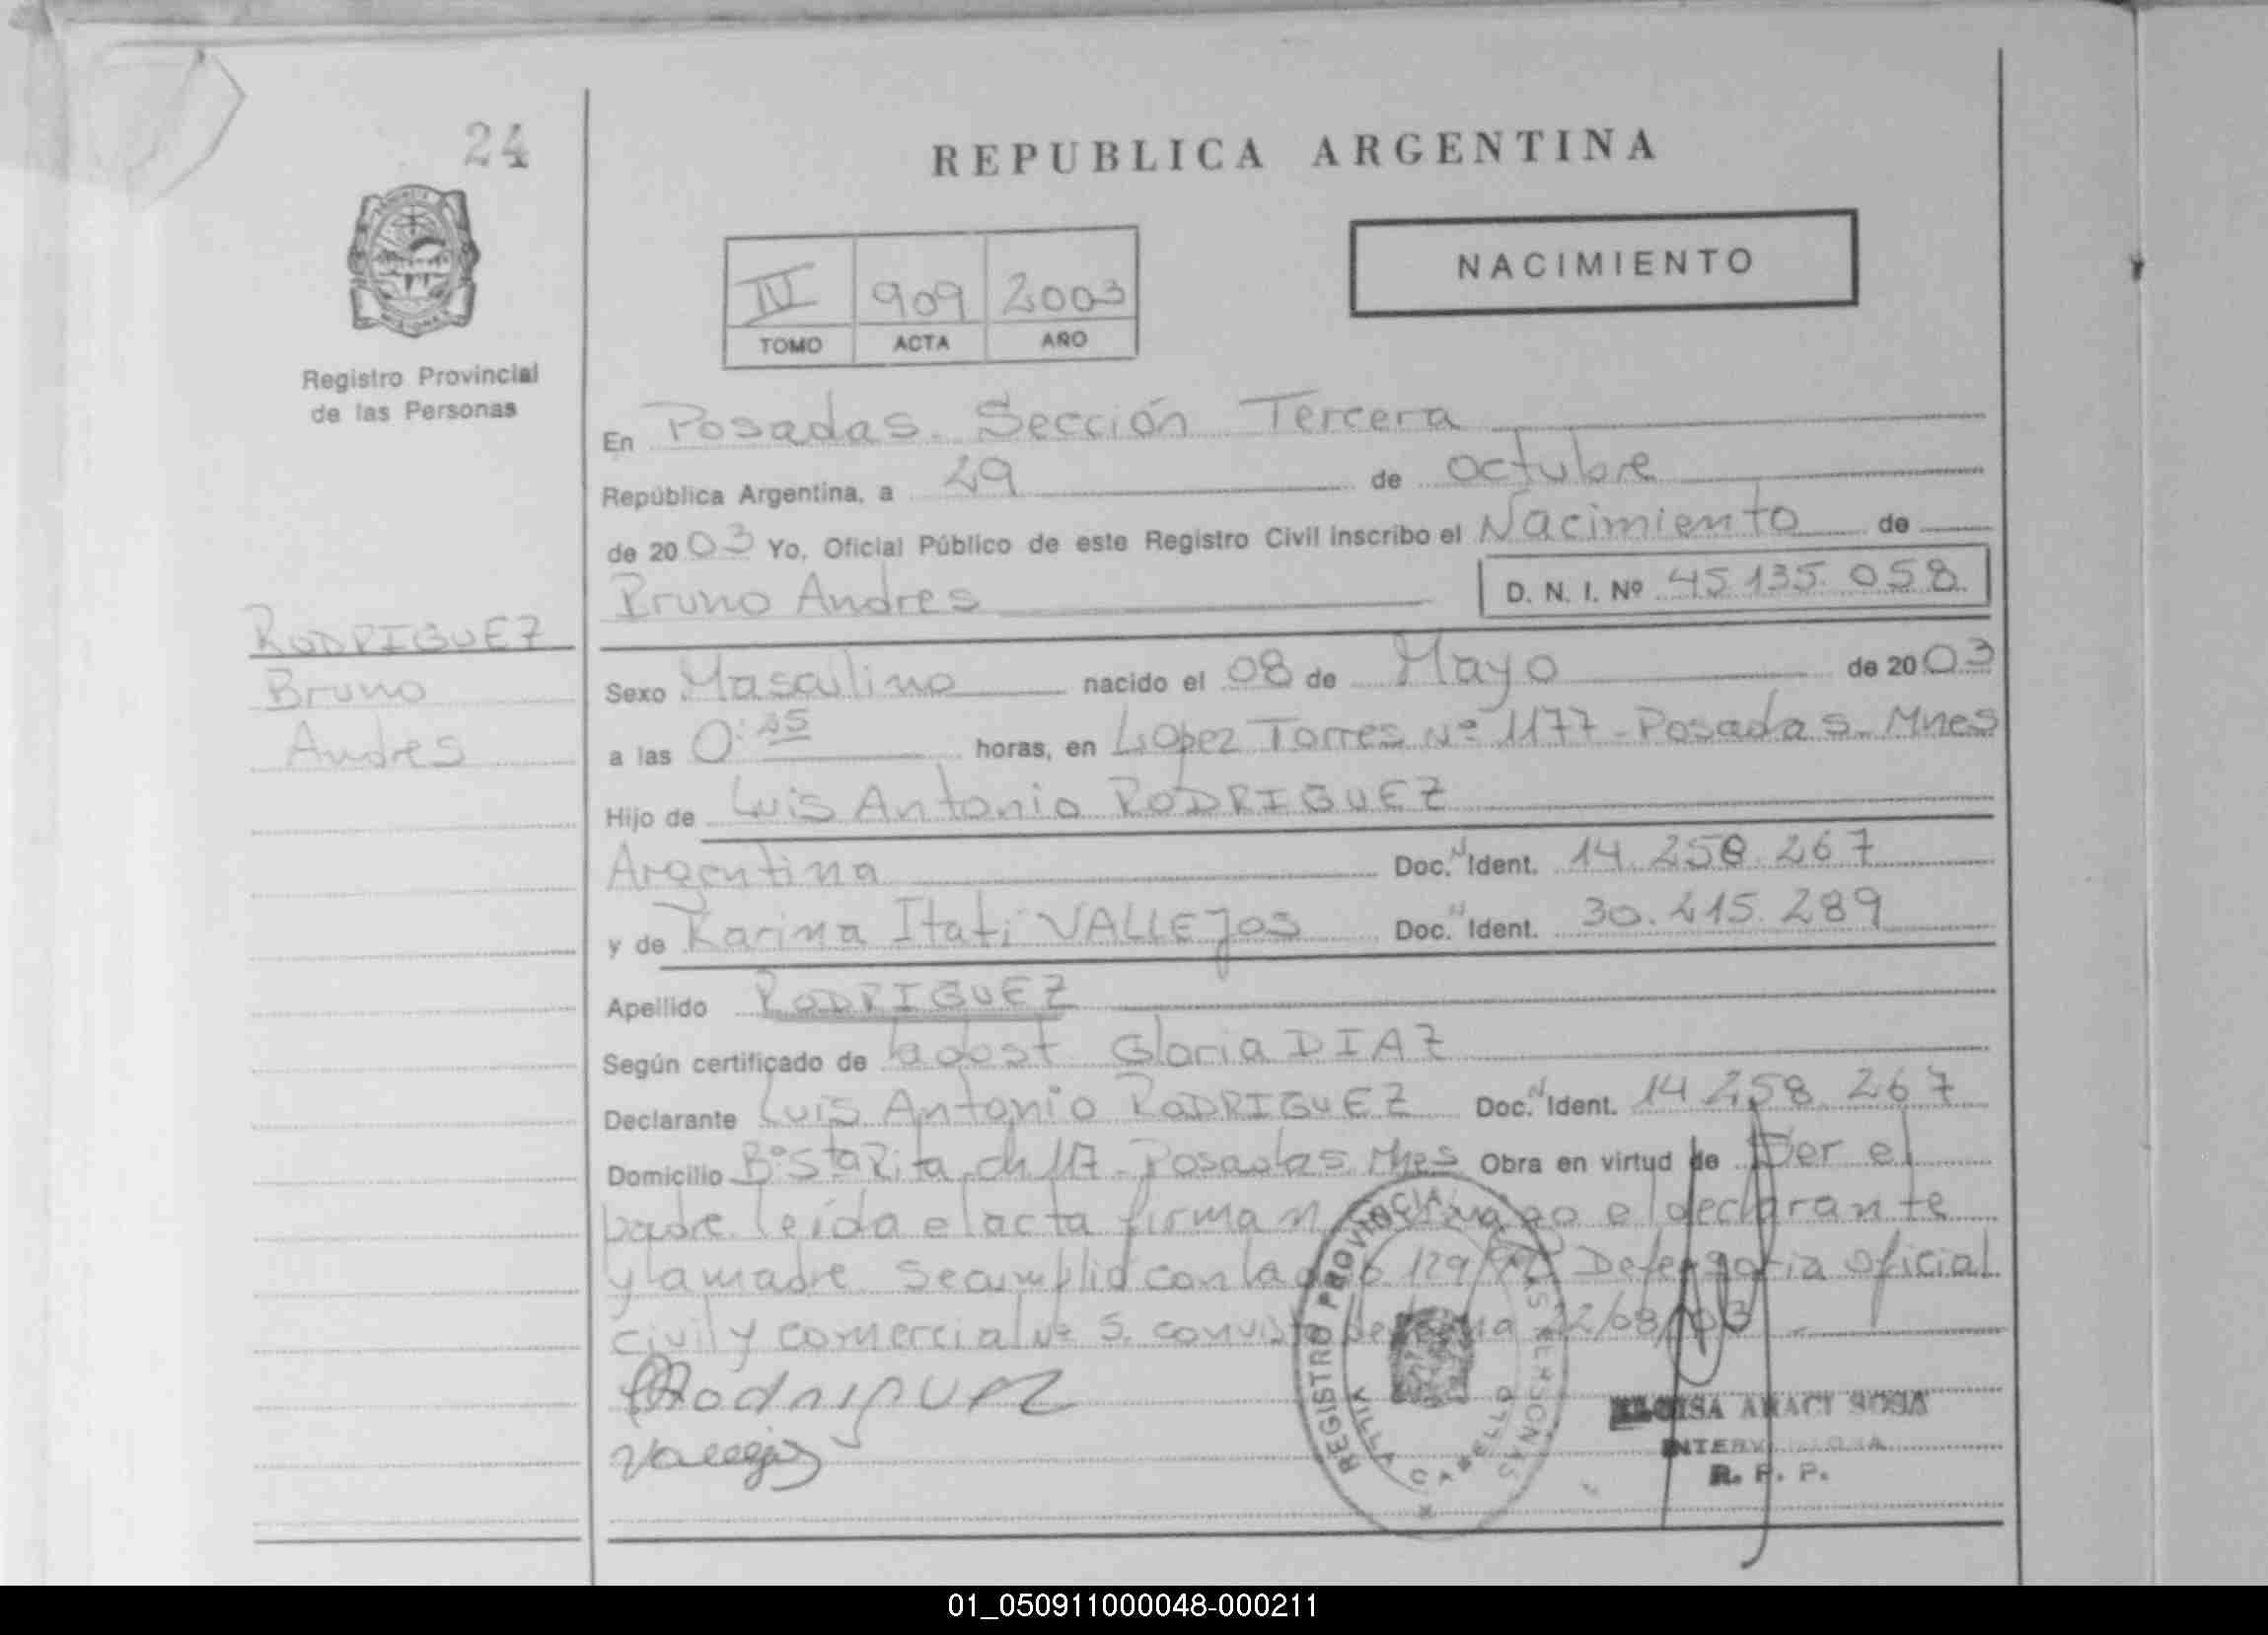 24
REPUBLICA ARGENTINA
NACIMIENTO
IV 909 2003
TOMO ACTA AÑO
Registro Provincial
de las Personas
En Posadas. Sección Tercera
República Argentina, a 29 de octubre
de 2003 Yo, Oficial Público de este Registro Civil inscribo el Nacimiento de
Bruno Andres D. N. I. Nº 45.135.058
RODRIGUEZ
Bruno
Andres
Sexo Masculino nacido el 08 de Mayo de 2003
a las 0: horas, en López Torres Nº 1177 - Posadas - Mnes
Hijo de Luis Antonio RODRIGUEZ
Argentina Doc. N Ident. 14.258.267
y de Karina Itati VALLEJOS Doc. N Ident. 30.215.289
Apellido RODRIGUEZ
Según certificado de la obst Gloria DIAZ
Declarante Luis Antonio RODRIGUEZ Doc. N Ident. 14.258.267
Domicilio Bº Sta Rita ch 17 - Posadas Mnes Obra en virtud de Ser el
padre. leida el acta firman el declarante
y la madre. Se cumplió con la 129/ Defensoria Oficial
civil y comercial Nº 5. con vista de fecha 22/08/03
Rodriguez
Vallejos
REGISTRO PROVINCIAL DE LAS PERSONAS
ARACI SOSA
R. P. P.
01_050911000048-000211